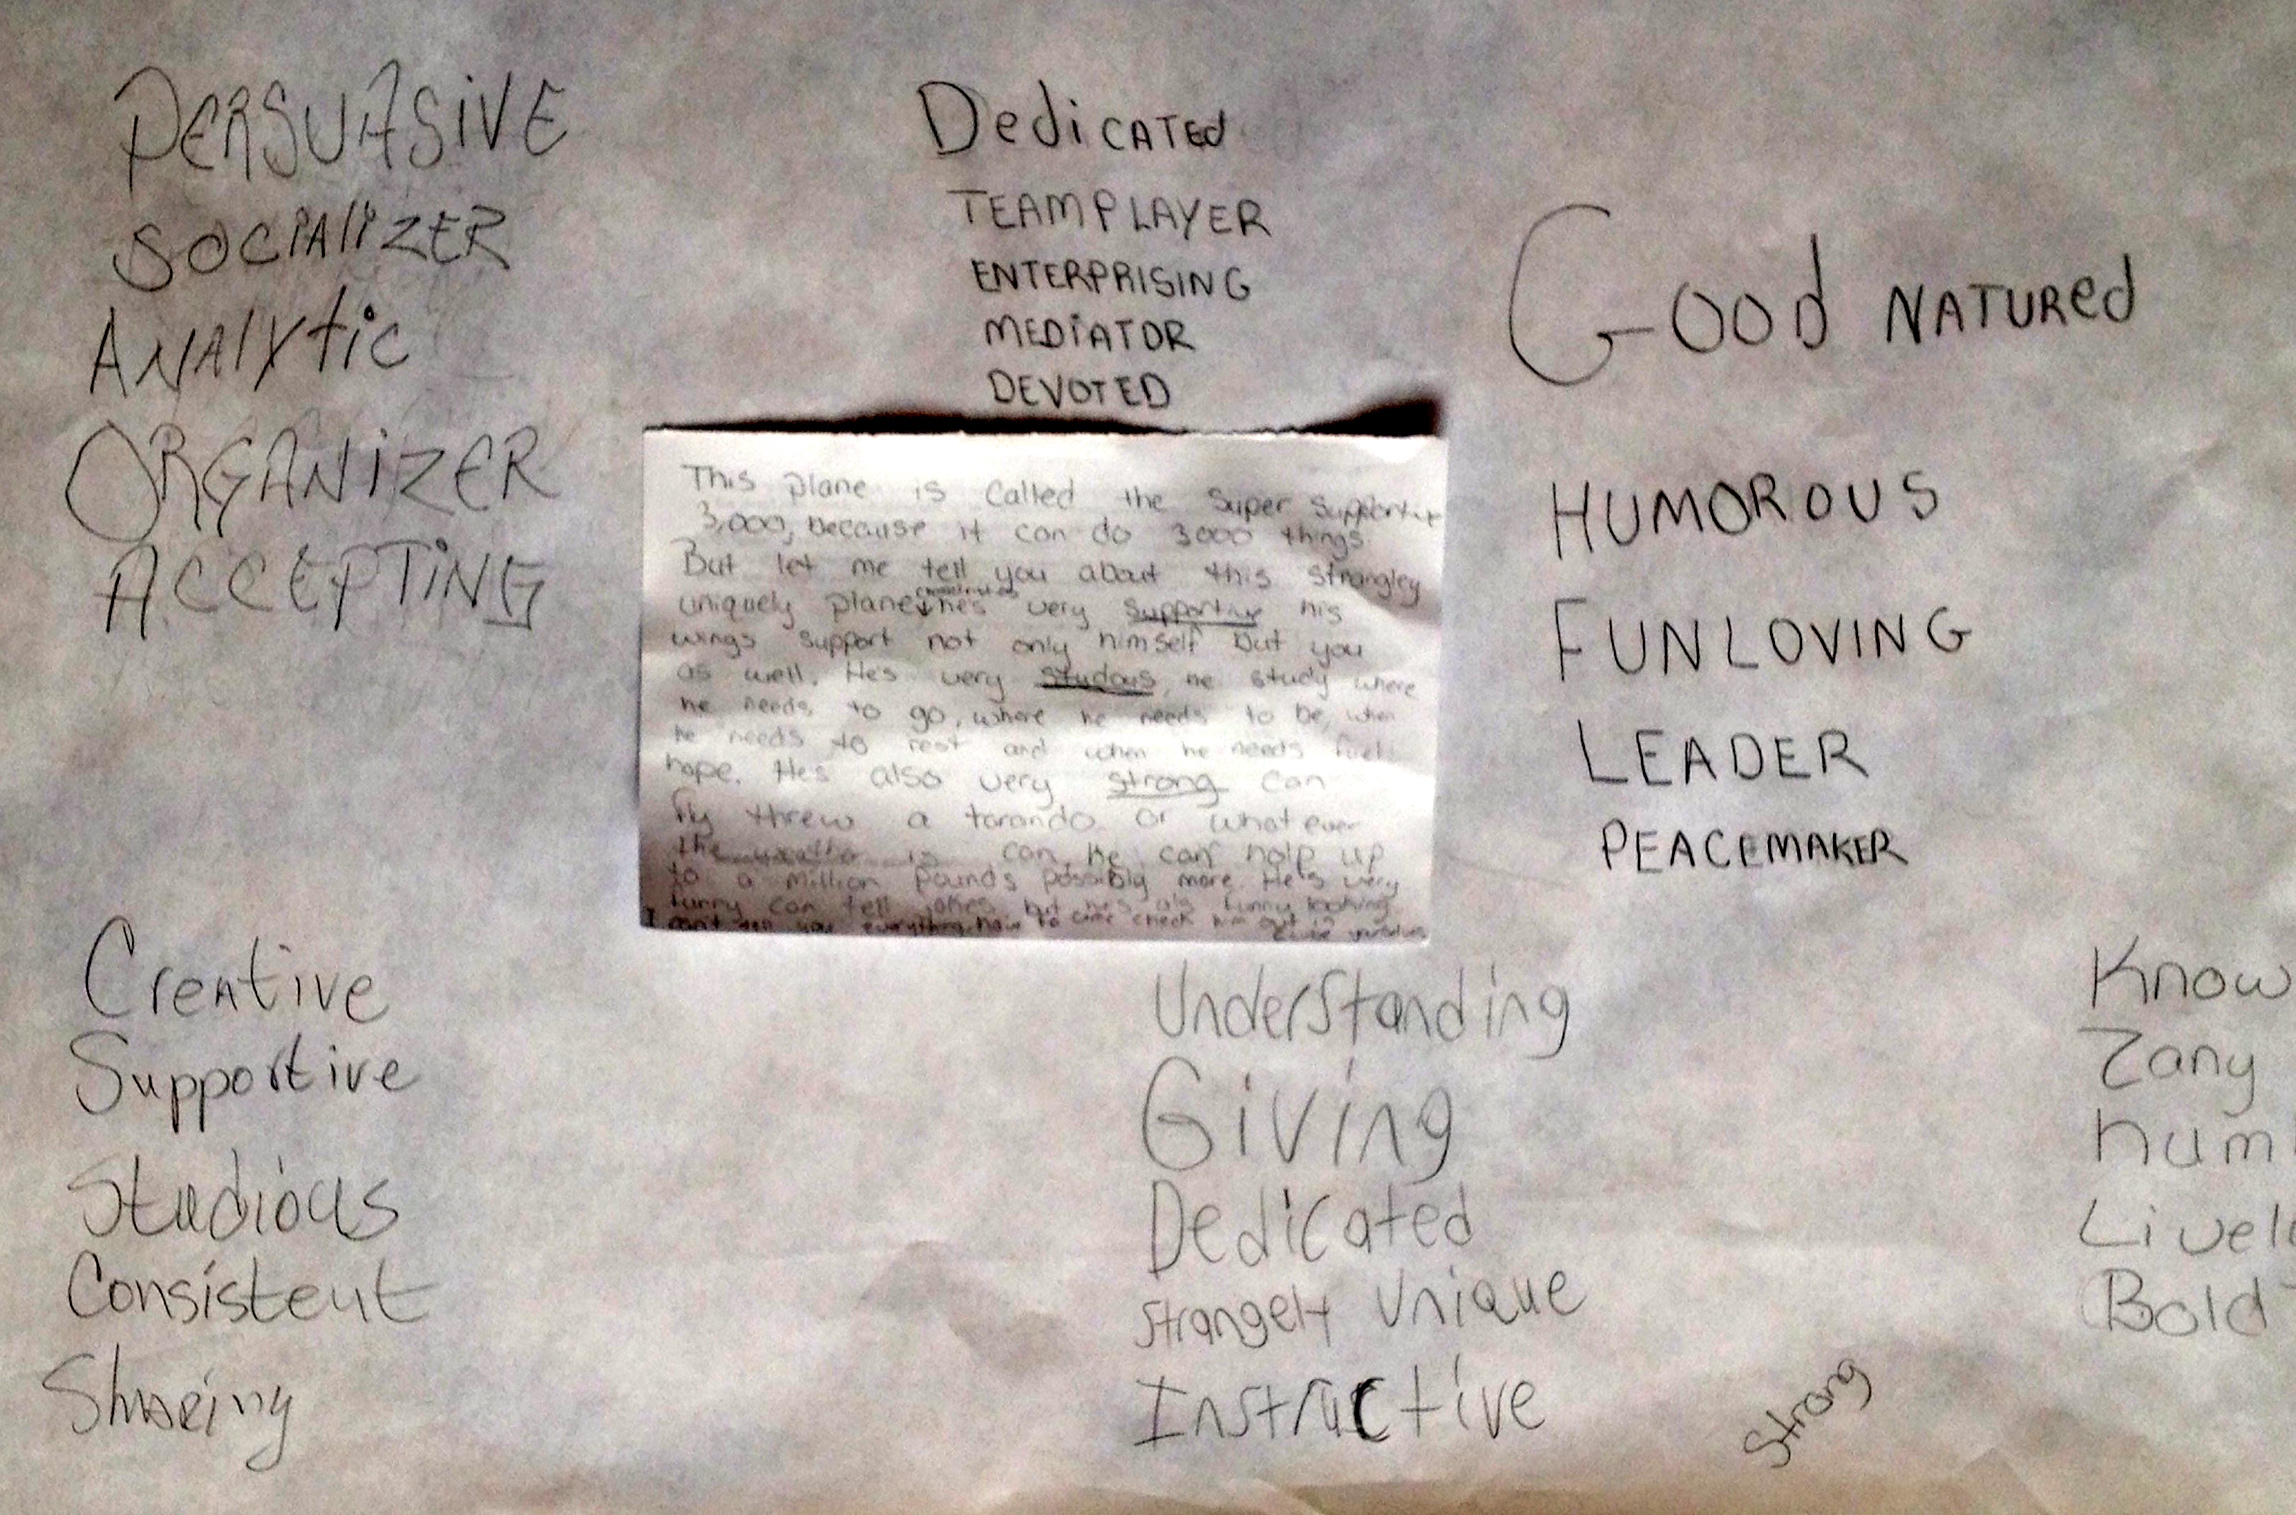 PERSUASiVE
SOCIAlIZER
ANAlYtiC
ORGANiZER
ACCEPTiNG
DediCATEd
TEAMPLAYER
ENTERPRISING
MEDiATOR
DEVOTED
GOOd NATUREd
HUMOROUS
FUNLOVING
LEADER
PEACEMAKER
This plane is called the Super Supportive
3,000, because it can do 3000 things
But let me tell you about this strangley
uniquely plane, he's very supportive his
wings support not only himself but you
as well. He's very studous, he study where
he needs to go, where he needs to be, when
he needs to rest and when he needs fuel
hope. He's also very strong can
fly threw a torando or what ever
the is can, he can help up
to a million pounds possibly more. He's very
funny can tell jokes but he's als funny looking
I can't tell you everything have to come check him out
Creative
Supportive
Studious
Consistent
Sharing
Understanding
Giving
Dedicated
Strangely Unique
Instructive
Strong
Know
Zany
hum
Livel
Bold